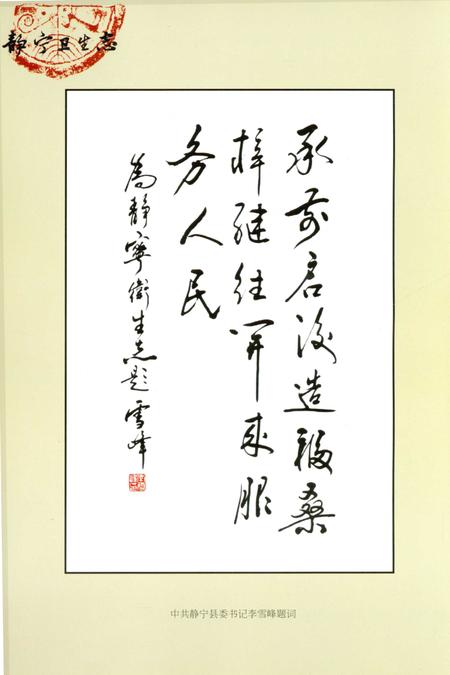 静宁卫生志
承前启后造福桑
梓继往开来服
务人民
为静寧衛生志题 雪峰
中共静宁县委书记李雪峰题词